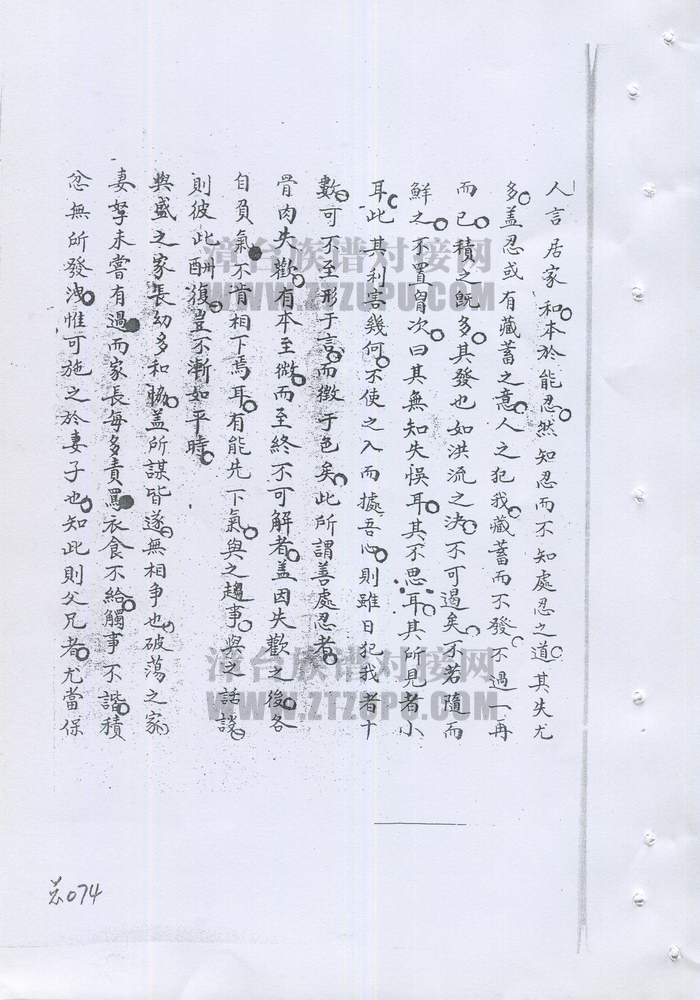 人言居家和本於能忍然知忍而不知處忍之道其失尤
多盖忍或有藏蓄之意人之犯我藏蓄而不發不過一再
而已積之既多其發也如洪流之決不可遏矣不若隨而
鮮之不置胷次曰其無知失悞耳其不思耳其所見者小
耳此其利害幾何不使之入而據吾心則雖日犯我者十
數可不至形于言而徴于色矣此所謂善處忍者
骨肉失歡有本至微而至終不可解者盖因失歡之後各
自負氣不肯相下焉耳有能先下氣與之趨事與之話談
則彼此酬復豈不漸如平時
興盛之家長幼多和協盖所謀皆遂無相争也破蕩之家
妻孥未嘗有過而家長每多責罵衣食不給觸事不諧積
忿無所發洩惟可施之於妻子也知此則父兄者尤當保
总074
漳台族谱对接网
WWW.ZTZUPU.COM
漳台族谱对接网
WWW.ZTZUPU.COM